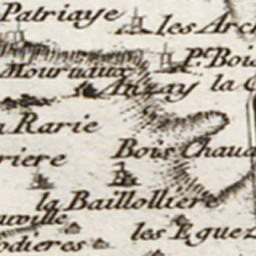 Patriaye
les Arch
Pt. Bois
Mournaux
Anzay la C
Rarie
riere Bois Chaud
la Baillolliere
auville
odieres les Eguez